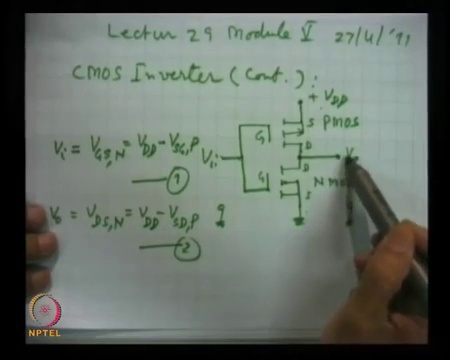 Lectur 29 Module V 27/4/'11
CMOS Inverter (Cont.) :
+ VDD
S PMOS
G
D
Vi = VGS,N = VDD - VSG,P
Vi
1
D
G
N
S
Vo = VDS,N = VDD - VSD,P
2
NPTEL